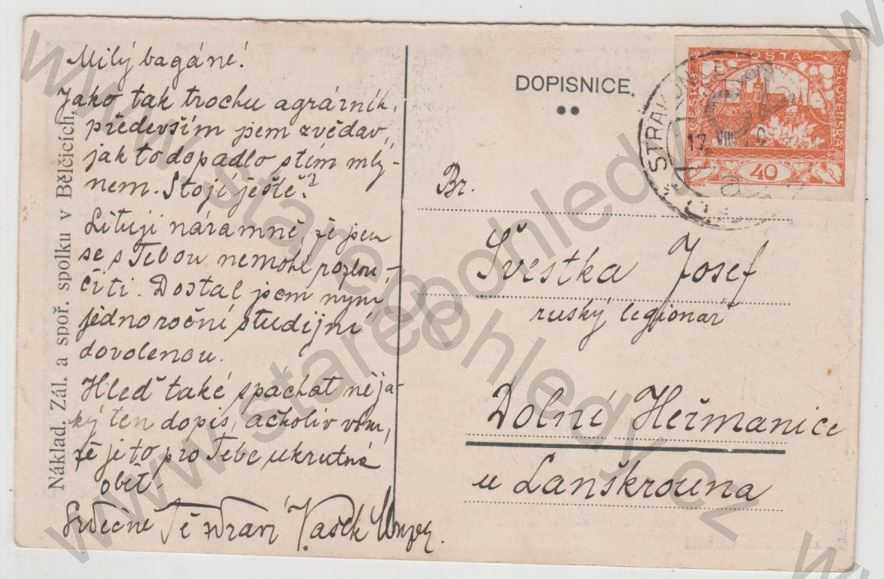 Milý bagáne!
Jako tak trochu agrárník,
především jsem zvědav,
jak to dopadlo s tím mlý-
nem. Stojí ještě?
Lituji náramně, že jsem
se s Tebou nemohl rozlou-
čiti. Dostal jsem nyní
jednoroční studijní
dovolenou.
Hleď také spáchat něja-
ký ten dopis, ačkoliv vím,
že je to pro Tebe ukrutná
oběť.
Srdečně Tě zdraví Vašek
Náklad. Zál. a spoř. spolku v Bělčicích.
DOPISNICE.
ČESKO POŠTA SLOVENSKÁ
40
STRAKONICE
17 VIII
Br.
Švestka Josef
ruský legionář
Dolní Heřmanice
u Lanškrouna
www.starepohledy.cz